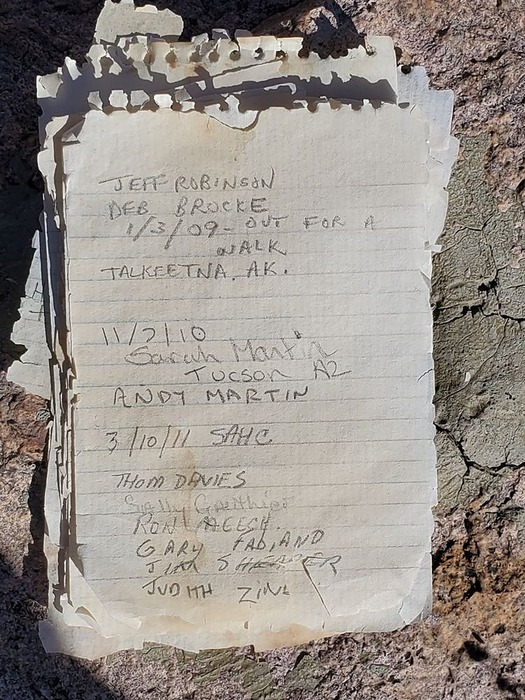 JEFF ROBINSON
DEB BROCKE
1/3/09 - OUT FOR A
WALK
TALKEETNA, AK.
11/7/10
Sarah Martin
Tucson AZ
ANDY MARTIN
3/10/11 SAHC
THOM DAVIES
Sally
RON
GARY FABIAND
JIM SHEAFFER
JUDITH ZINK